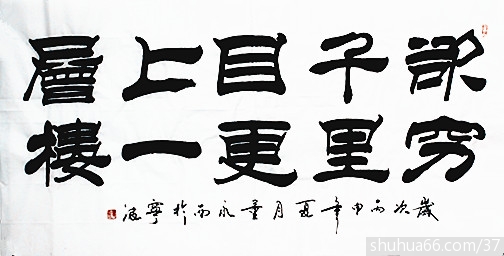 欲穷
千里
目更
上一
層樓
歲次丙申年夏月永於寧波
shuhua66.com/37